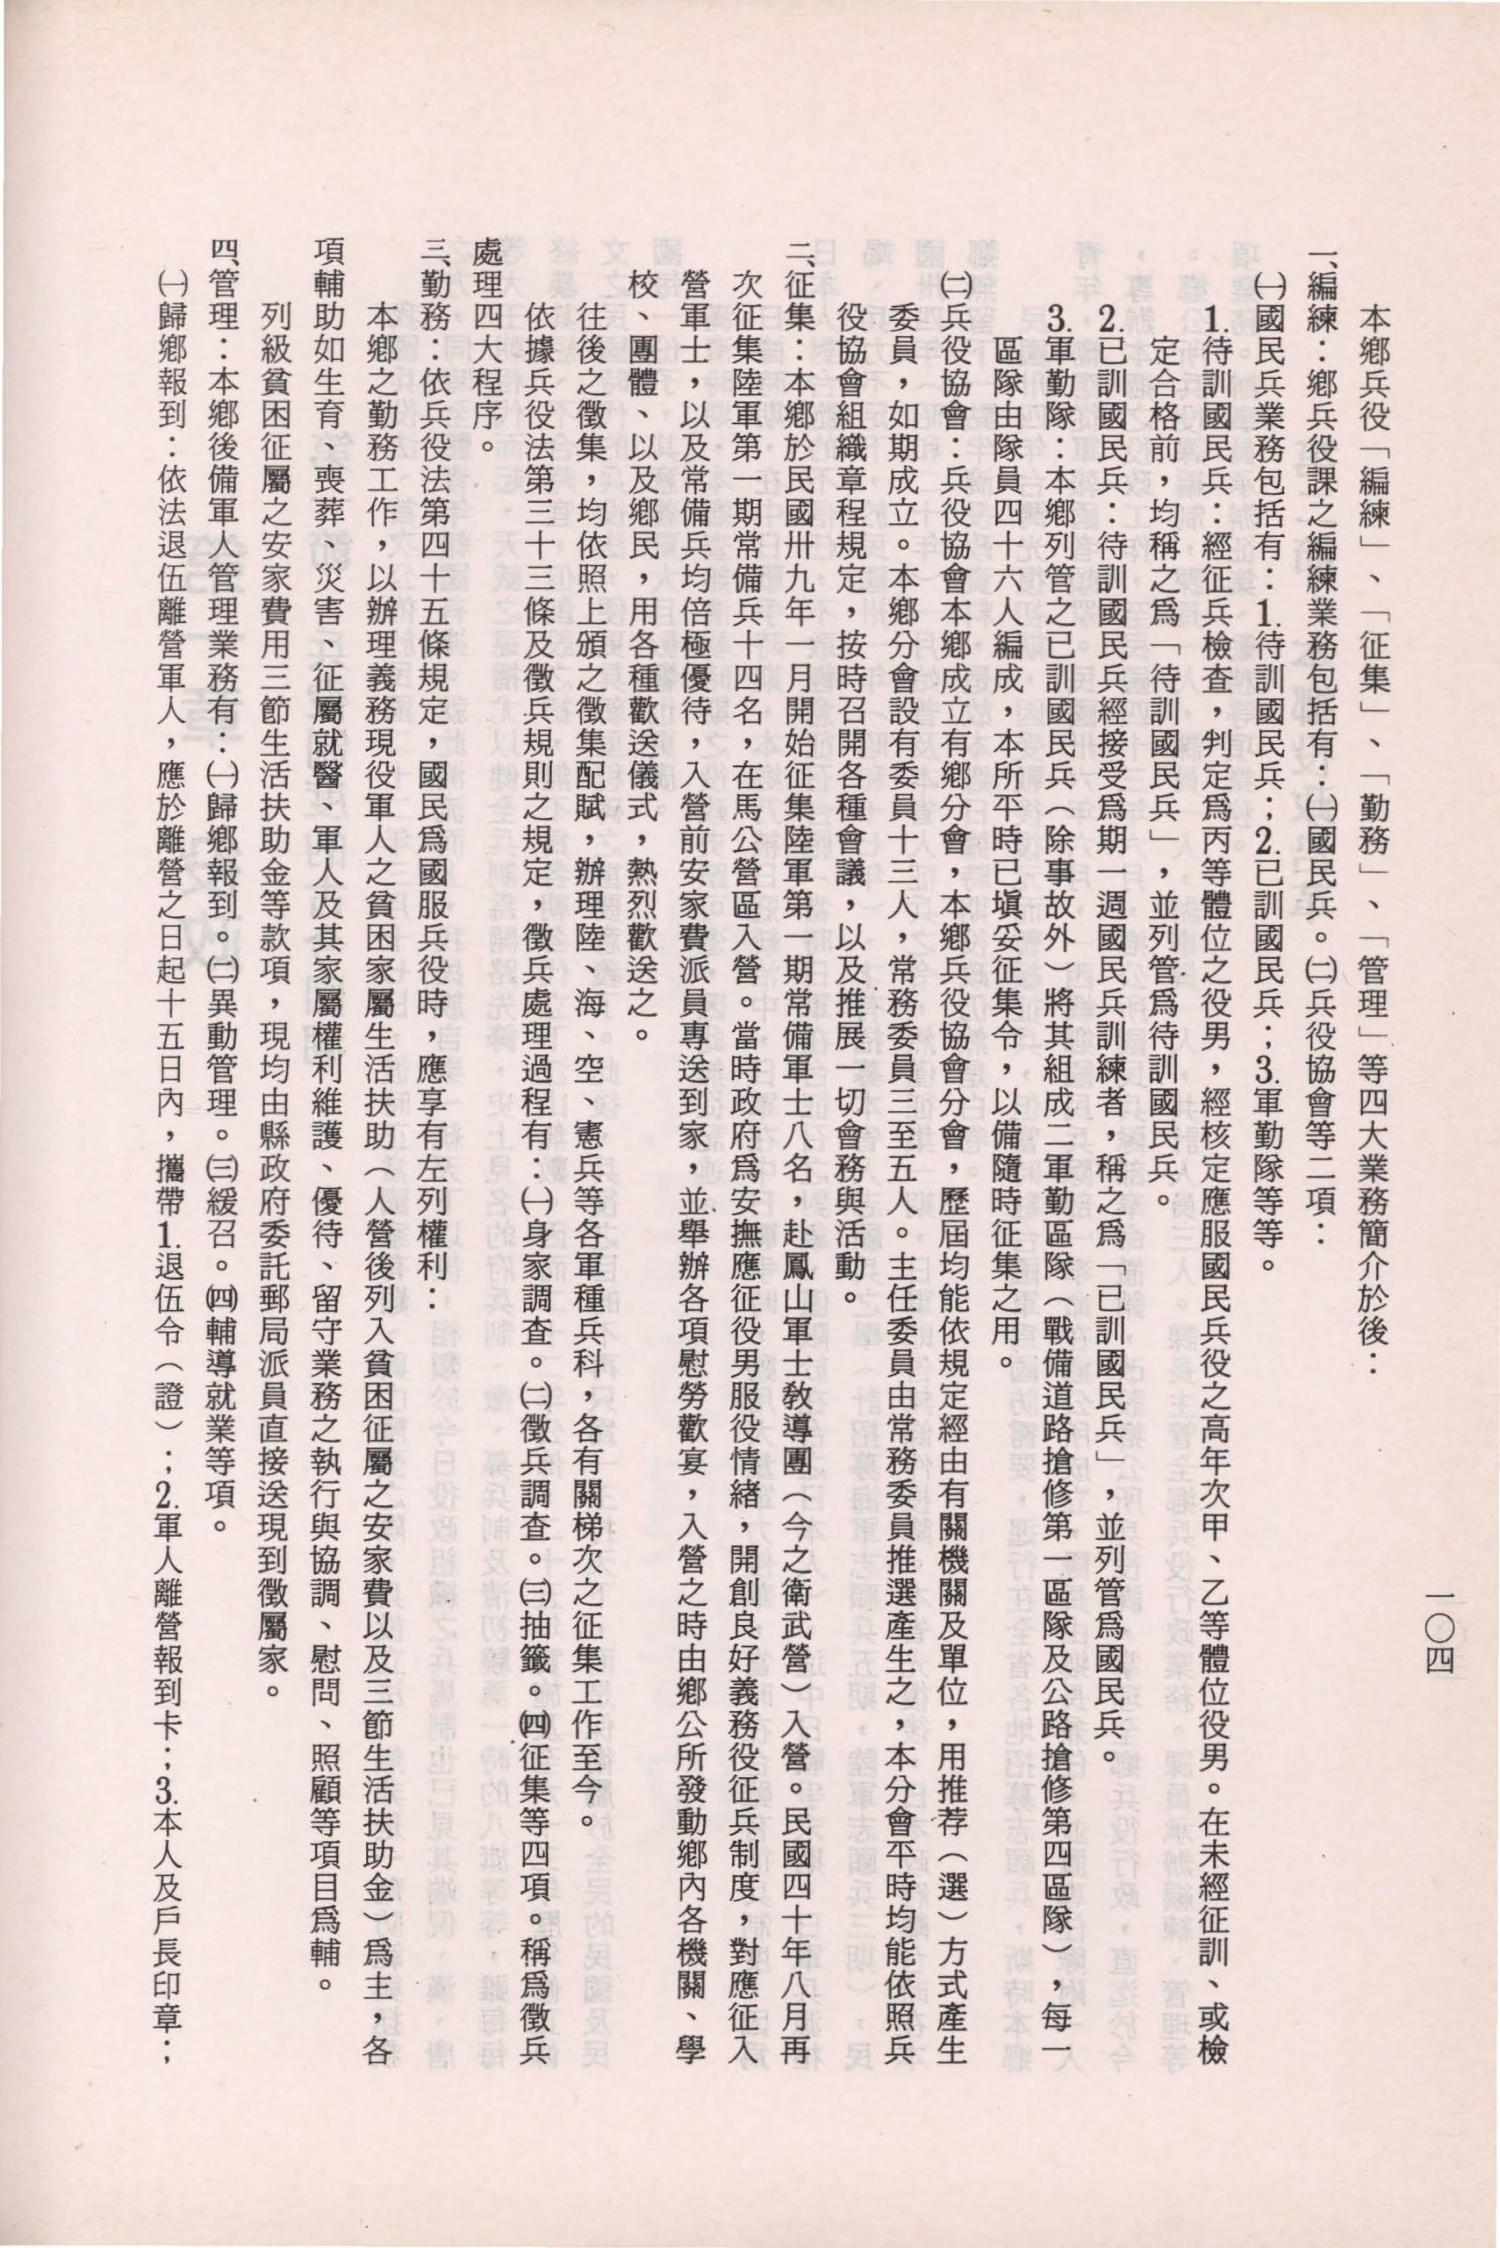 一〇四
本鄉兵役「編練」、「征集」、「勤務」、「管理」等四大業務簡介於後：
一、編練：鄉兵役課之編練業務包括有：㈠國民兵。㈡兵役協會等二項：
㈠國民兵業務包括有：1.待訓國民兵；2.已訓國民兵；3.軍勤隊等等。
1.待訓國民兵：經征兵檢查，判定爲丙等體位之役男，經核定應服國民兵役之高年次甲、乙等體位役男。在未經征訓、或檢
定合格前，均稱之爲「待訓國民兵」，並列管爲待訓國民兵。
2.已訓國民兵：待訓國民兵經接受爲期一週國民兵訓練者，稱之爲「已訓國民兵」，並列管爲國民兵。
3.軍勤隊：本鄉列管之已訓國民兵（除事故外）將其組成二軍勤區隊（戰備道路搶修第一區隊及公路搶修第四區隊），每一
區隊由隊員四十六人編成，本所平時已塡妥征集令，以備隨時征集之用。
㈡兵役協會：兵役協會本鄉成立有鄉分會，本鄉兵役協會分會，歷屆均能依規定經由有關機關及單位，用推荐（選）方式產生
委員，如期成立。本鄉分會設有委員十三人，常務委員三至五人。主任委員由常務委員推選產生之，本分會平時均能依照兵
役協會組織章程規定，按時召開各種會議，以及推展一切會務與活動。
二、征集：本鄉於民國卅九年一月開始征集陸軍第一期常備軍士八名，赴鳳山軍士敎導團（今之衛武營）入營。民國四十年八月再
次征集陸軍第一期常備兵十四名，在馬公營區入營。當時政府爲安撫應征役男服役情緒，開創良好義務役征兵制度，對應征入
營軍士，以及常備兵均倍極優待，入營前安家費派員專送到家，並舉辦各項慰勞歡宴，入營之時由鄉公所發動鄉內各機關、學
校、團體、以及鄉民，用各種歡送儀式，熱烈歡送之。
往後之徵集，均依照上頒之徵集配賦，辦理陸、海、空、憲兵等各軍種兵科，各有關梯次之征集工作至今。
依據兵役法第三十三條及徵兵規則之規定，徵兵處理過程有：㈠身家調查。㈡徵兵調查。㈢抽籤。㈣征集等四項。稱爲徵兵
處理四大程序。
三、勤務：依兵役法第四十五條規定，國民爲國服兵役時，應享有左列權利：
本鄉之勤務工作，以辦理義務現役軍人之貧困家屬生活扶助（人營後列入貧困征屬之安家費以及三節生活扶助金）爲主，各
項輔助如生育、喪葬、災害、征屬就醫、軍人及其家屬權利維護、優待、留守業務之執行與協調、慰問、照顧等項目爲輔。
列級貧困征屬之安家費用三節生活扶助金等款項，現均由縣政府委託郵局派員直接送現到徵屬家。
四、管理：本鄉後備軍人管理業務有：㈠歸鄉報到。㈡異動管理。㈢緩召。㈣輔導就業等項。
㈠歸鄉報到：依法退伍離營軍人，應於離營之日起十五日內，攜帶1.退伍令（證）；2.軍人離營報到卡；3.本人及戶長印章；